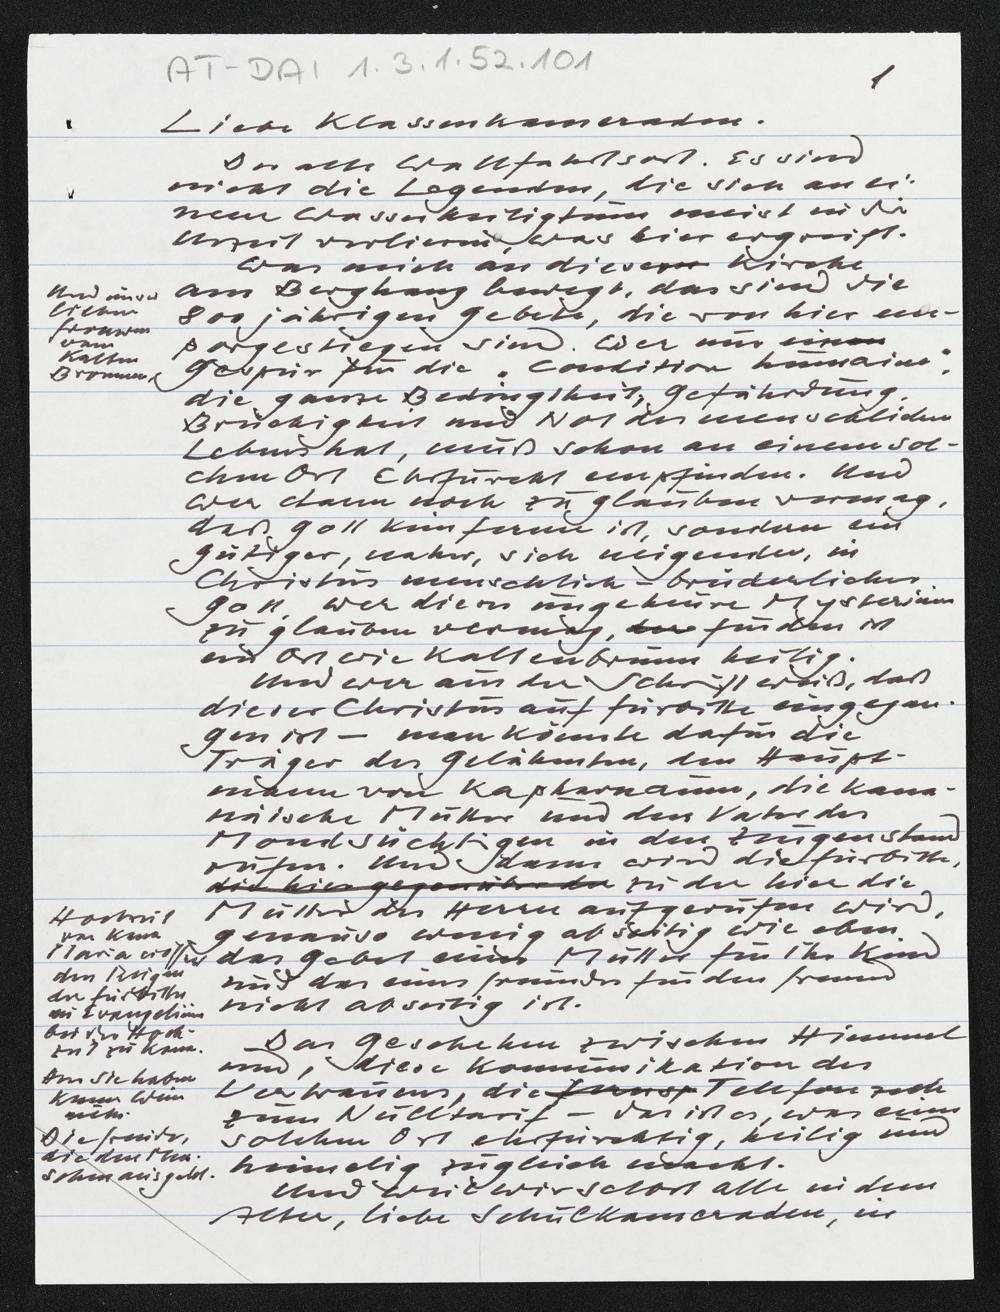 AT-DAI 1.3.1.52.101
1
Liebe Klassenkameraden.
Der alte Wallfahrtsort. Es sind
nicht die Legenden, die sich an ei-
nem Wasserheiligtum meist in die
Urzeit verlieren was hier ergreift.
Was mich an dieser Kirche
am Berghang bewegt, das sind die
800 jährigen Gebete, die von hier em-
porgestiegen sind. Wer nur einen
Gespür für die "Condition humaine",
die ganze Bedingtheit, Gefährdung,
Brüchigkeit und Not des menschlichen
Lebens hat, muß schon an einem sol-
chen Ort Ehrfurcht empfinden. Und
wer dann noch zu glauben vermag,
daß Gott kein ferner ist, sondern ein
gütiger, naher, sich neigender, in
Christus menschlich-brüderlicher
Gott, wer dieses ungeheure Mysterium
zu glauben vermag, für den ist
ein Ort wie Kaltenbrunn heilig.
Und wer aus der Schrift weiß, daß
dieser Christus auf Fürbitte eingegan-
gen ist - man könnte dafür die
Träger des Gelähmten, den Haupt-
mann von Kapharnaum, die kana-
näische Mutter und den Vater des
Mondsüchtigen in den Zeugenstand
rufen. Und dann wird die Fürbitte,
die hier gegenüber der zu der hier die
Mutter des Herrn aufgerufen wird,
genauso wenig abseitig wie eben
das Gebet einer Mutter für ihr Kind
und das eines Freundes für den Freund
nicht abseitig ist.
Das Geschehen zwischen Himmel
und, diese Kommunikation des
Vertrauens, die Telefon
zum Nulltarif - das ist es, was einen
solchen Ort ehrfürchtig, heilig und
heimelig zugleich macht.
Und weil wir schort alle in dem
Alter, liebe Schulkameraden, in
Und unser
lieben
Frauen
vom
Kalten
Bronnen
Hochzeit
von Kana
Maria eröffnet
den Reigen
der Fürbitte
im Evangelium
bei der Hoch-
zeit zu Kana.
Sie haben
keinen Wein
mehr.
Die Freunde,
die den